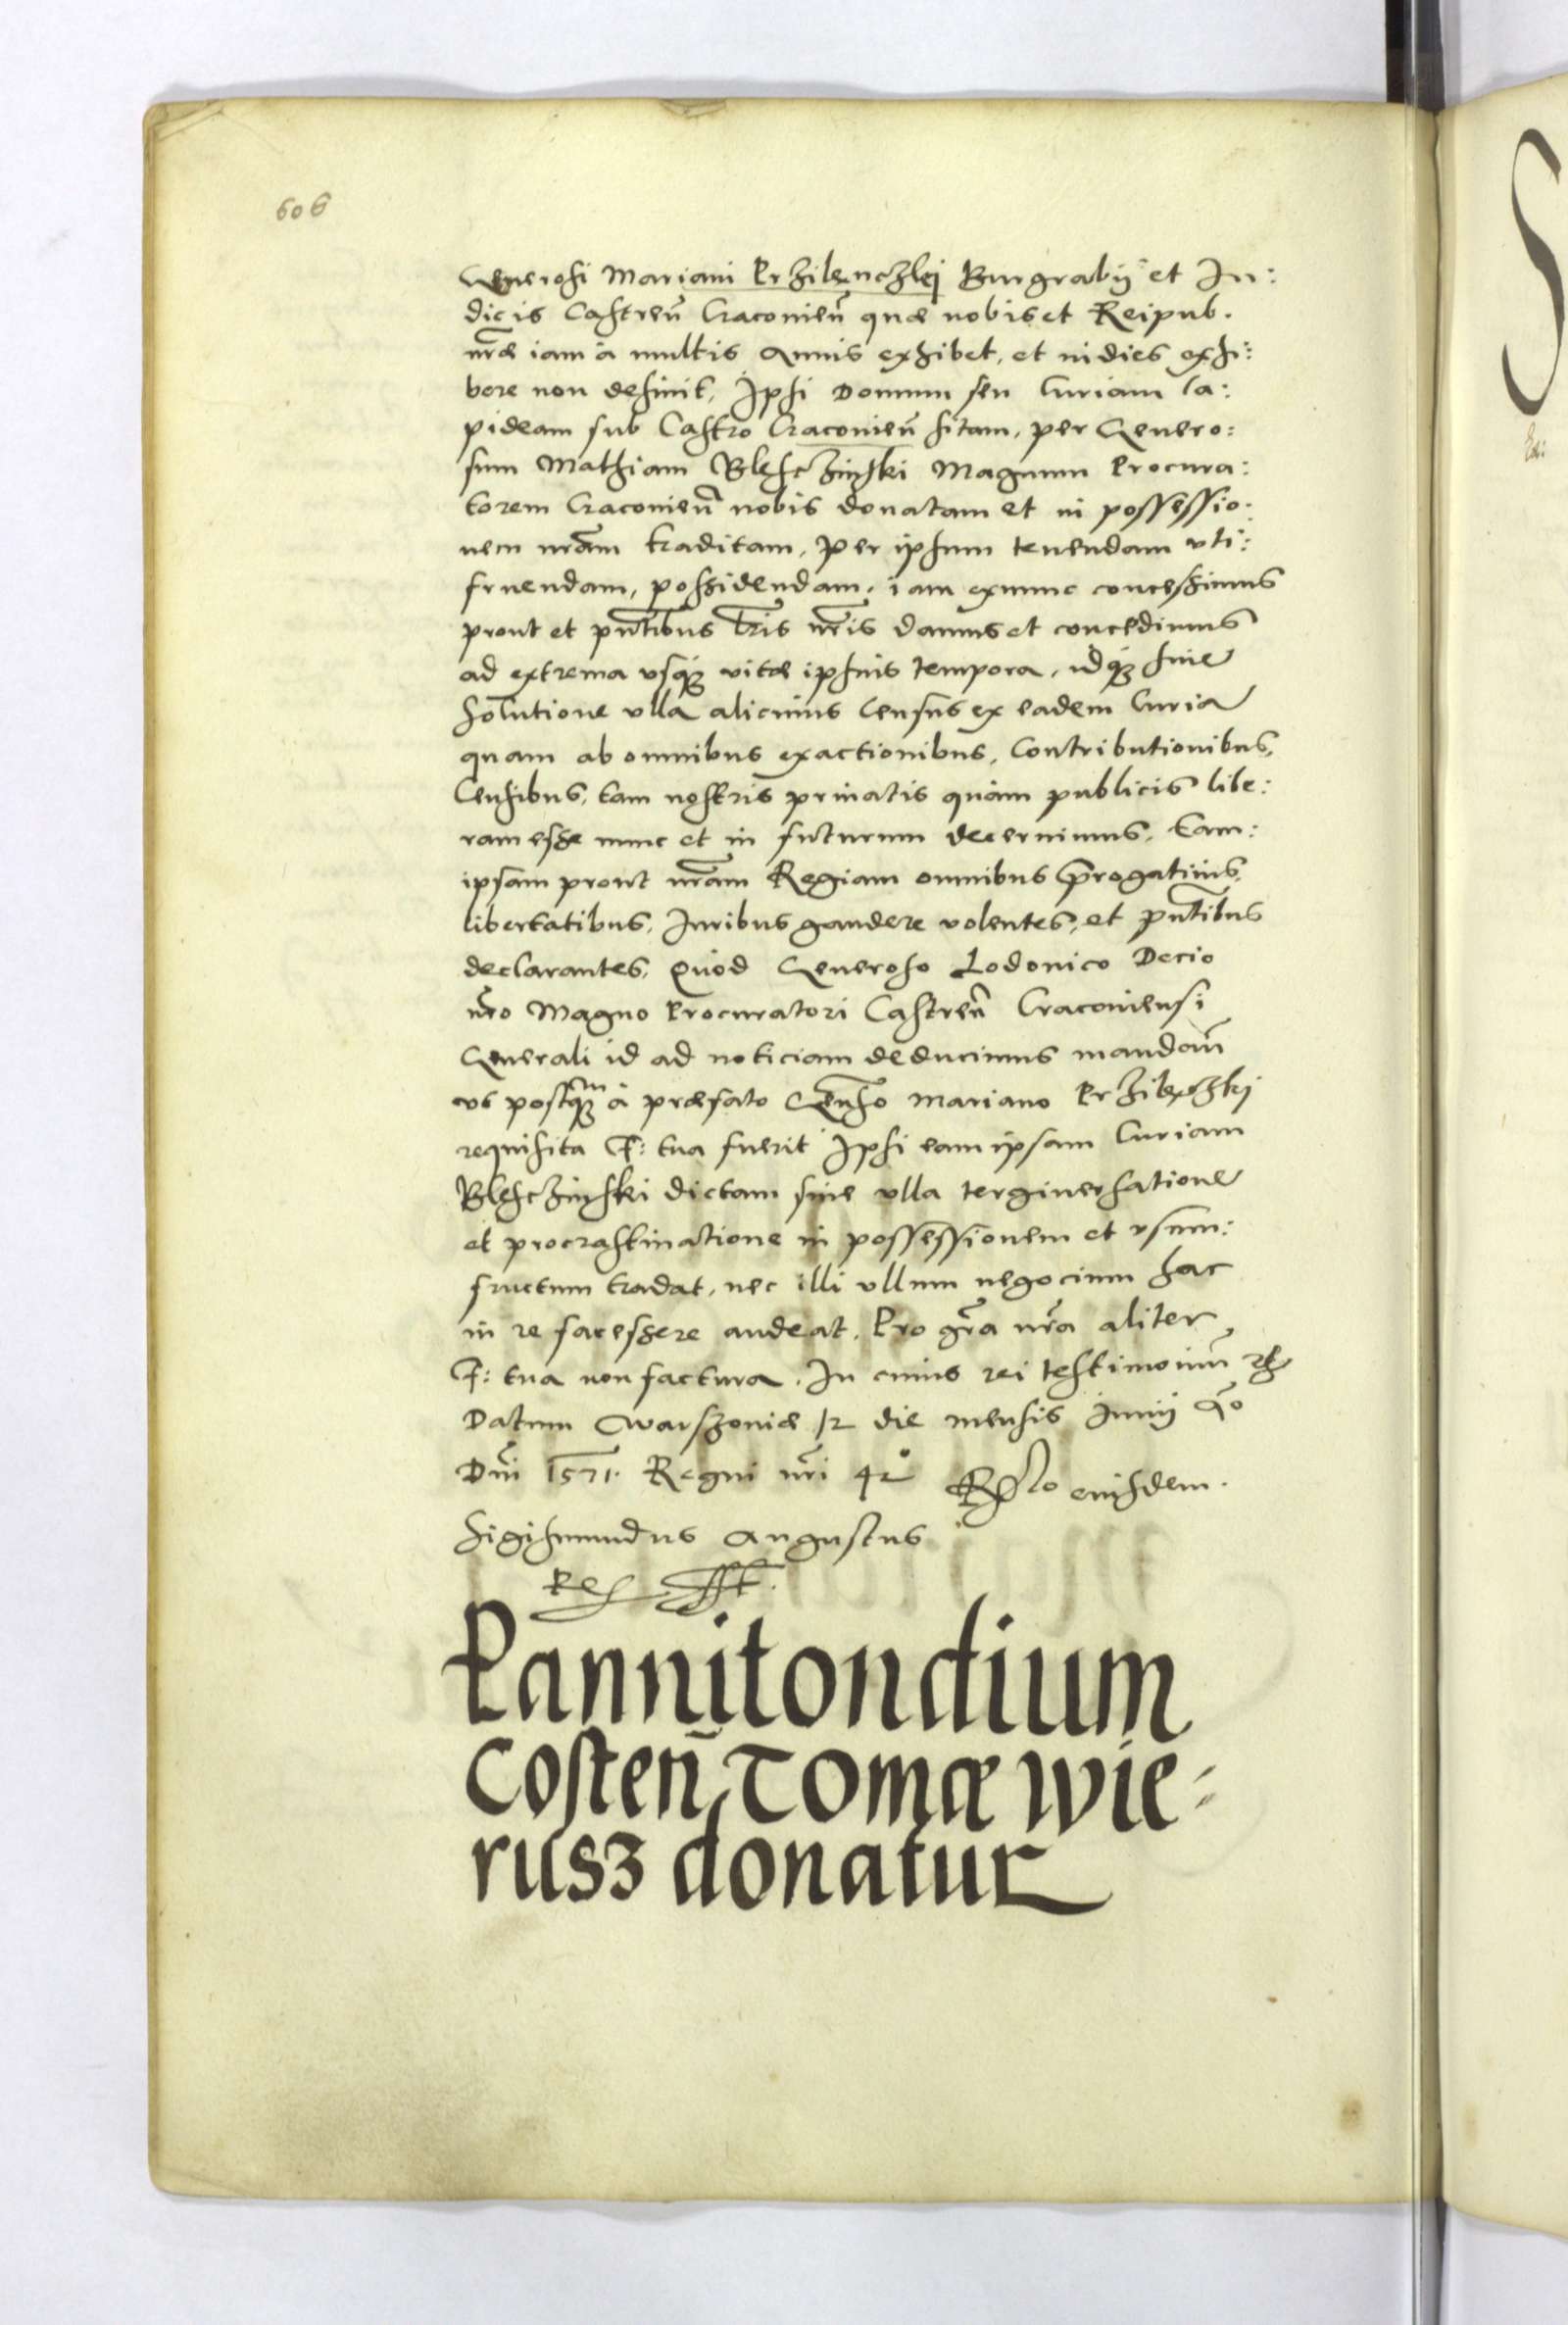 606
Generosi Mariani Przilenczkj Burgrabij et Iu:
dicis Castreñ Cracovieñ quæ nobis et Reipub.
nr̃æ iam à multis Annis exhibet, et in dies exhi:
bere non desinit, Ipsi Domum seu Curiam la:
pideam sub Castro Cracovieñ sitam, per Genero:
sum Mathiam Blesczinski Magnum Procura:
torem Cracovieñ nobis donatam et in possessio:
nem nr̃am traditam, per ipsum tenendam uti:
fruendam, possidendam, iam exnunc concessimus
prout et pñtibus lr̃is nr̃is damus et concedimus
ad extrema usq3 vitæ ipsius tempora, idq3 sine
solutione ulla alicuius Census ex eadem Curia
quam ab omnibus exactionibus, Contributionibus,
Censibus, tam nostris privatis quàm publicis libe:
ram esse nunc et in futurum decernimus, Eam:
ipsam prout nr̃am Regiam omnibus prærogativis,
libertatibus, Iuribus gaudere volentes, et pñtibus
declarantes, Quod Generoso Lodovico Decio
nr̃o Magno Procuratori Castreñ Cracoviensi
Generali id ad noticiam deducimus mandañ
vs postq3m à præfato Geñso Mariano Przileczkj
requisita F: tua fuerit Ipsi eam ipsam Curiam
Blesczinski dictam sine ulla tergiversatione
et procrastinatione in possessionem et usum:
fructum tradat, nec illi ullum negocium hac
in re facessere audeat. Pro gr̃a nr̃a aliter
F: tua non factura. In cuius rei testimonium rt
Datum Warszoviæ 12 die mensis Iunij Aº
Dñi 1571. Regni nr̃i 42º Rela eiusdem.
Sigismundus Augustus
Rex sst.
Pannitondium
Costeñ, Tomæ Wie-
rusz donatur